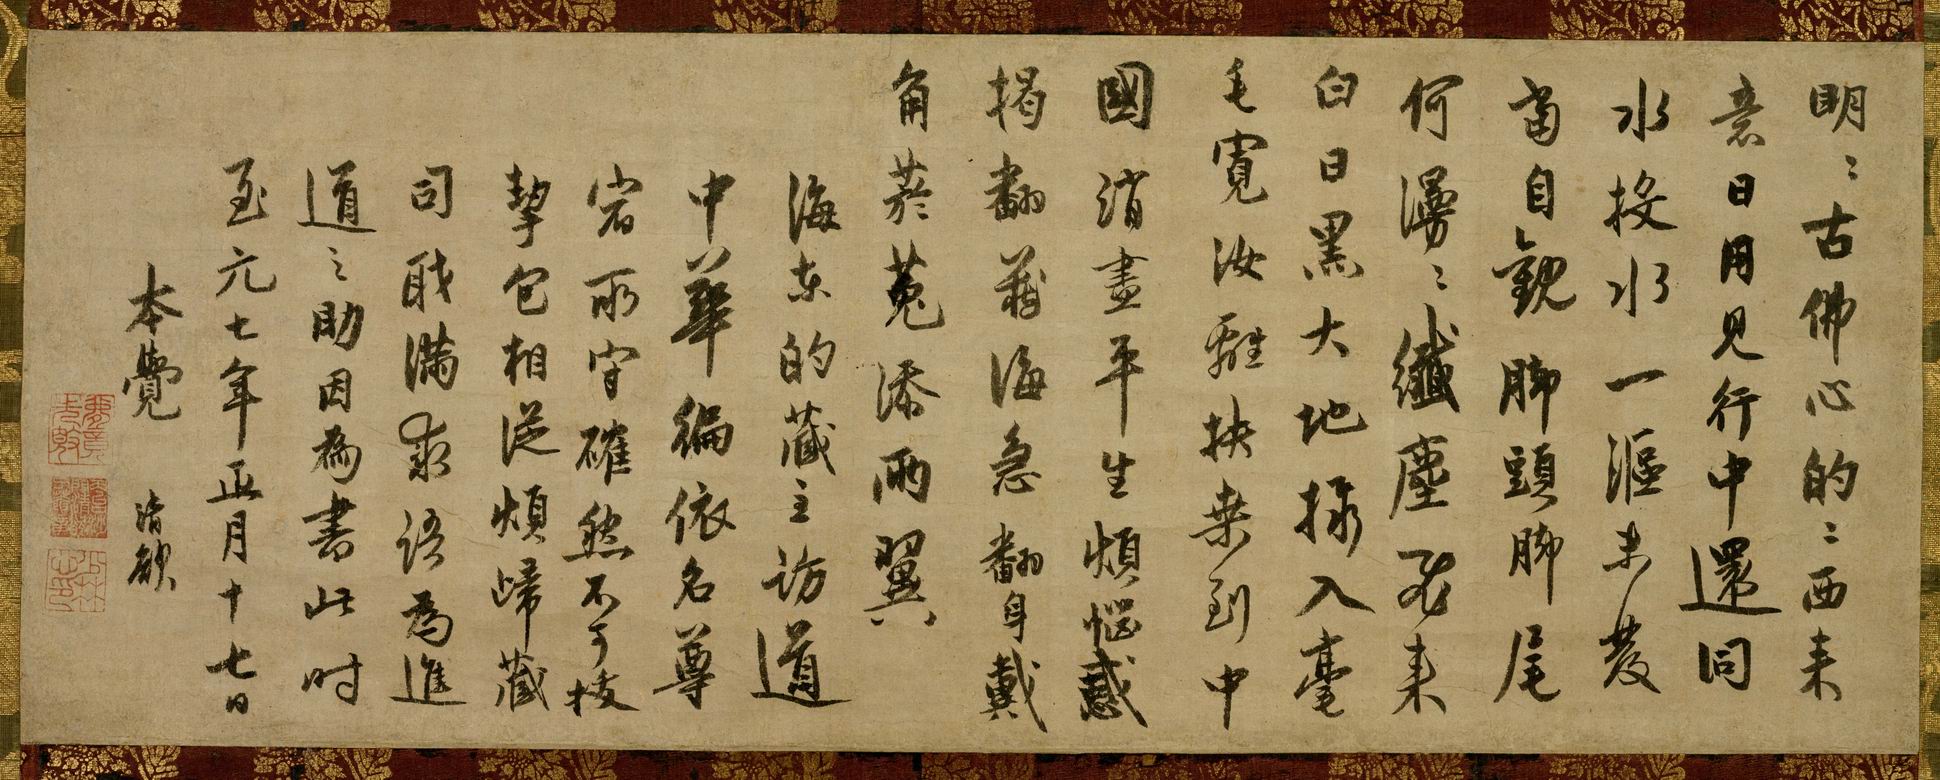 明〻古佛心的〻西来
意日用見行中還同
水投水一漚未發
當自觀脚頭脚尾
何漫〻纖塵飛来
白日黒大地捺入毫
毛寛汝離扶桒到中
國消盡平生煩惱惑
掲翻藏海急翻身戴
角菸菟添兩翼
海東的藏主訪道
中華徧依名尊
宿所守確然不可枝
挈包相従煩歸藏
司職滿求語為進
道之助因為書此时
至元七年正月十七日
本覺 清欲